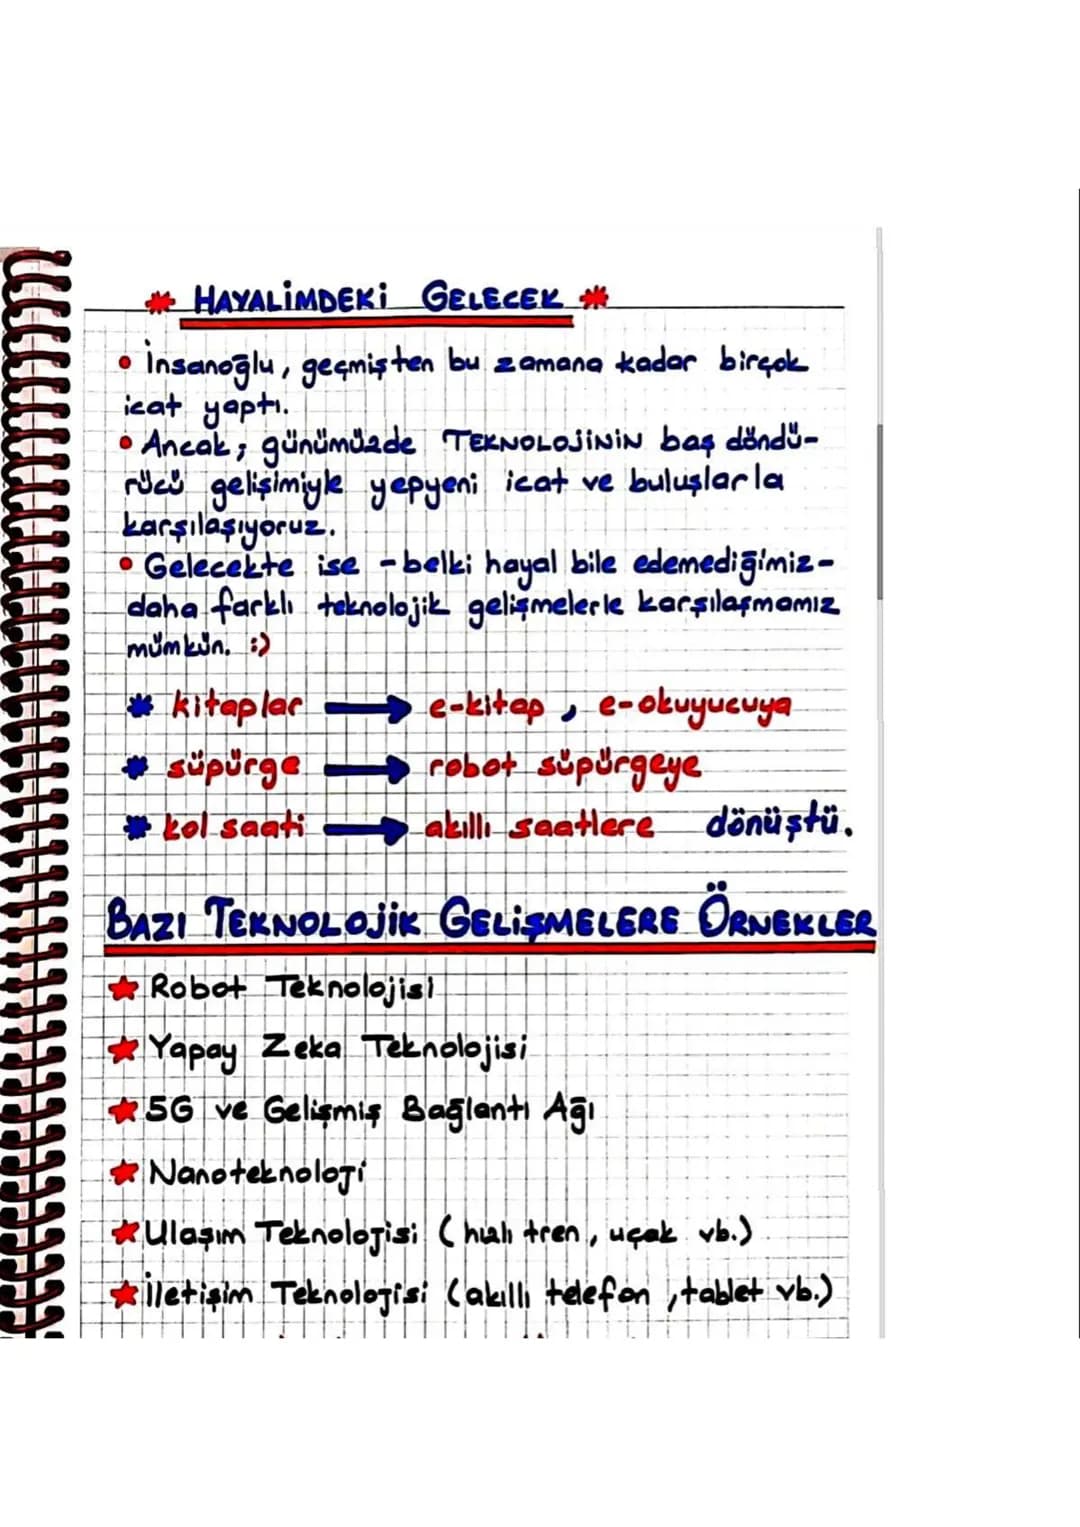 * HAYALİMDEKİ GELECEK *
• İnsanoğlu, geçmişten bu zamana kadar birçok
icat yaptı.
• Ancak; günümüzde TEKNOLOJİNİN baş döndü-
rücü gelişimiyle yepyeni icat ve buluşlarla
karşılaşıyoruz.
• Gelecekte ise -belki hayal bile edemediğimiz-
daha farklı teknolojik gelişmelerle karşılaşmamız
mümkün. :)
* kitaplar → e-kitap, e-okuyucuya
* süpürge → robot süpürgeye
* kol saati → akıllı saatlere dönüştü.
BAZI TEKNOLOJİK GELİŞMELERE ÖRNEKLER
★ Robot Teknolojisi
★ Yapay Zeka Teknolojisi
★ 5G ve Gelişmiş Bağlantı Ağı
★ Nanoteknoloji
★ Ulaşım Teknolojisi (hızlı tren, uçak vb.)
★ İletişim Teknolojisi (akıllı telefon, tablet vb.)